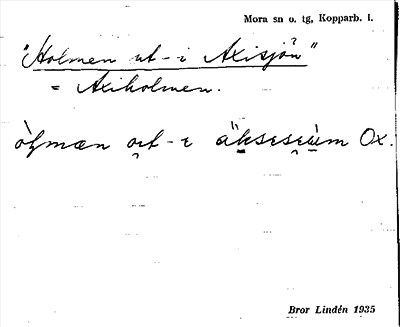 Mora sn o. tg, Kopparb. l.
"Holmen ut-i Axisjön"
= Axiholmen.
òɫmæn ɒt-ɪ äksɪsɪùm Ox.
Bror Lindén 1935